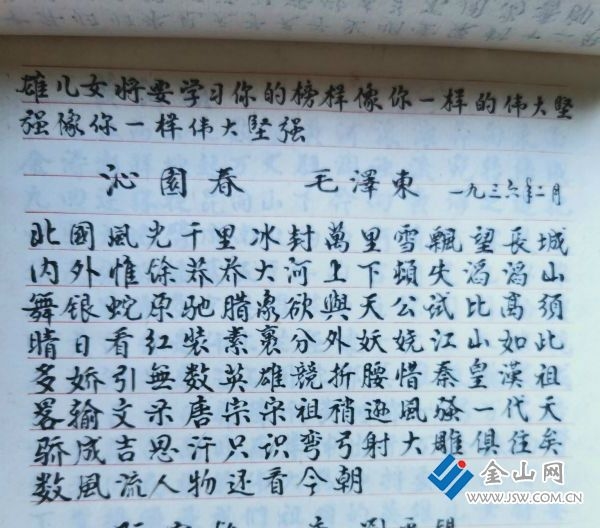 雄儿女将要学习你的榜样像你一样的伟大坚
强像你一样伟大坚强
沁園春 毛澤東 一九三六年二月
北國風光千里冰封萬里雪飄望長城
内外惟馀莽莽大河上下頓失滔滔山
舞银蛇原驰腊象欲與天公試比高須
晴日看红裝素裹分外妖娆江山如此
多娇引無数英雄競折腰惜秦皇漢祖
畧输文采唐宗宋祖稍逊風骚一代天
骄成吉思汗只识弯弓射大雕俱往矣
数風流人物还看今朝
金山网
WWW.JSW.COM.CN